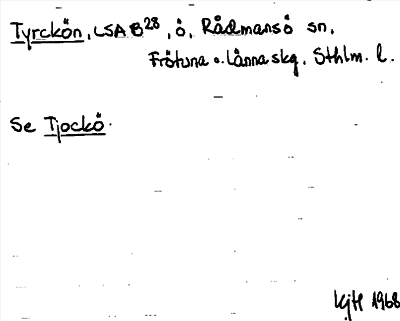 Tyrckön, LSA B28, ö, Rådmansö sn,
Frötuna o. Länna skg, Sthlm. l.
Se Tjockö.
KjH 1968